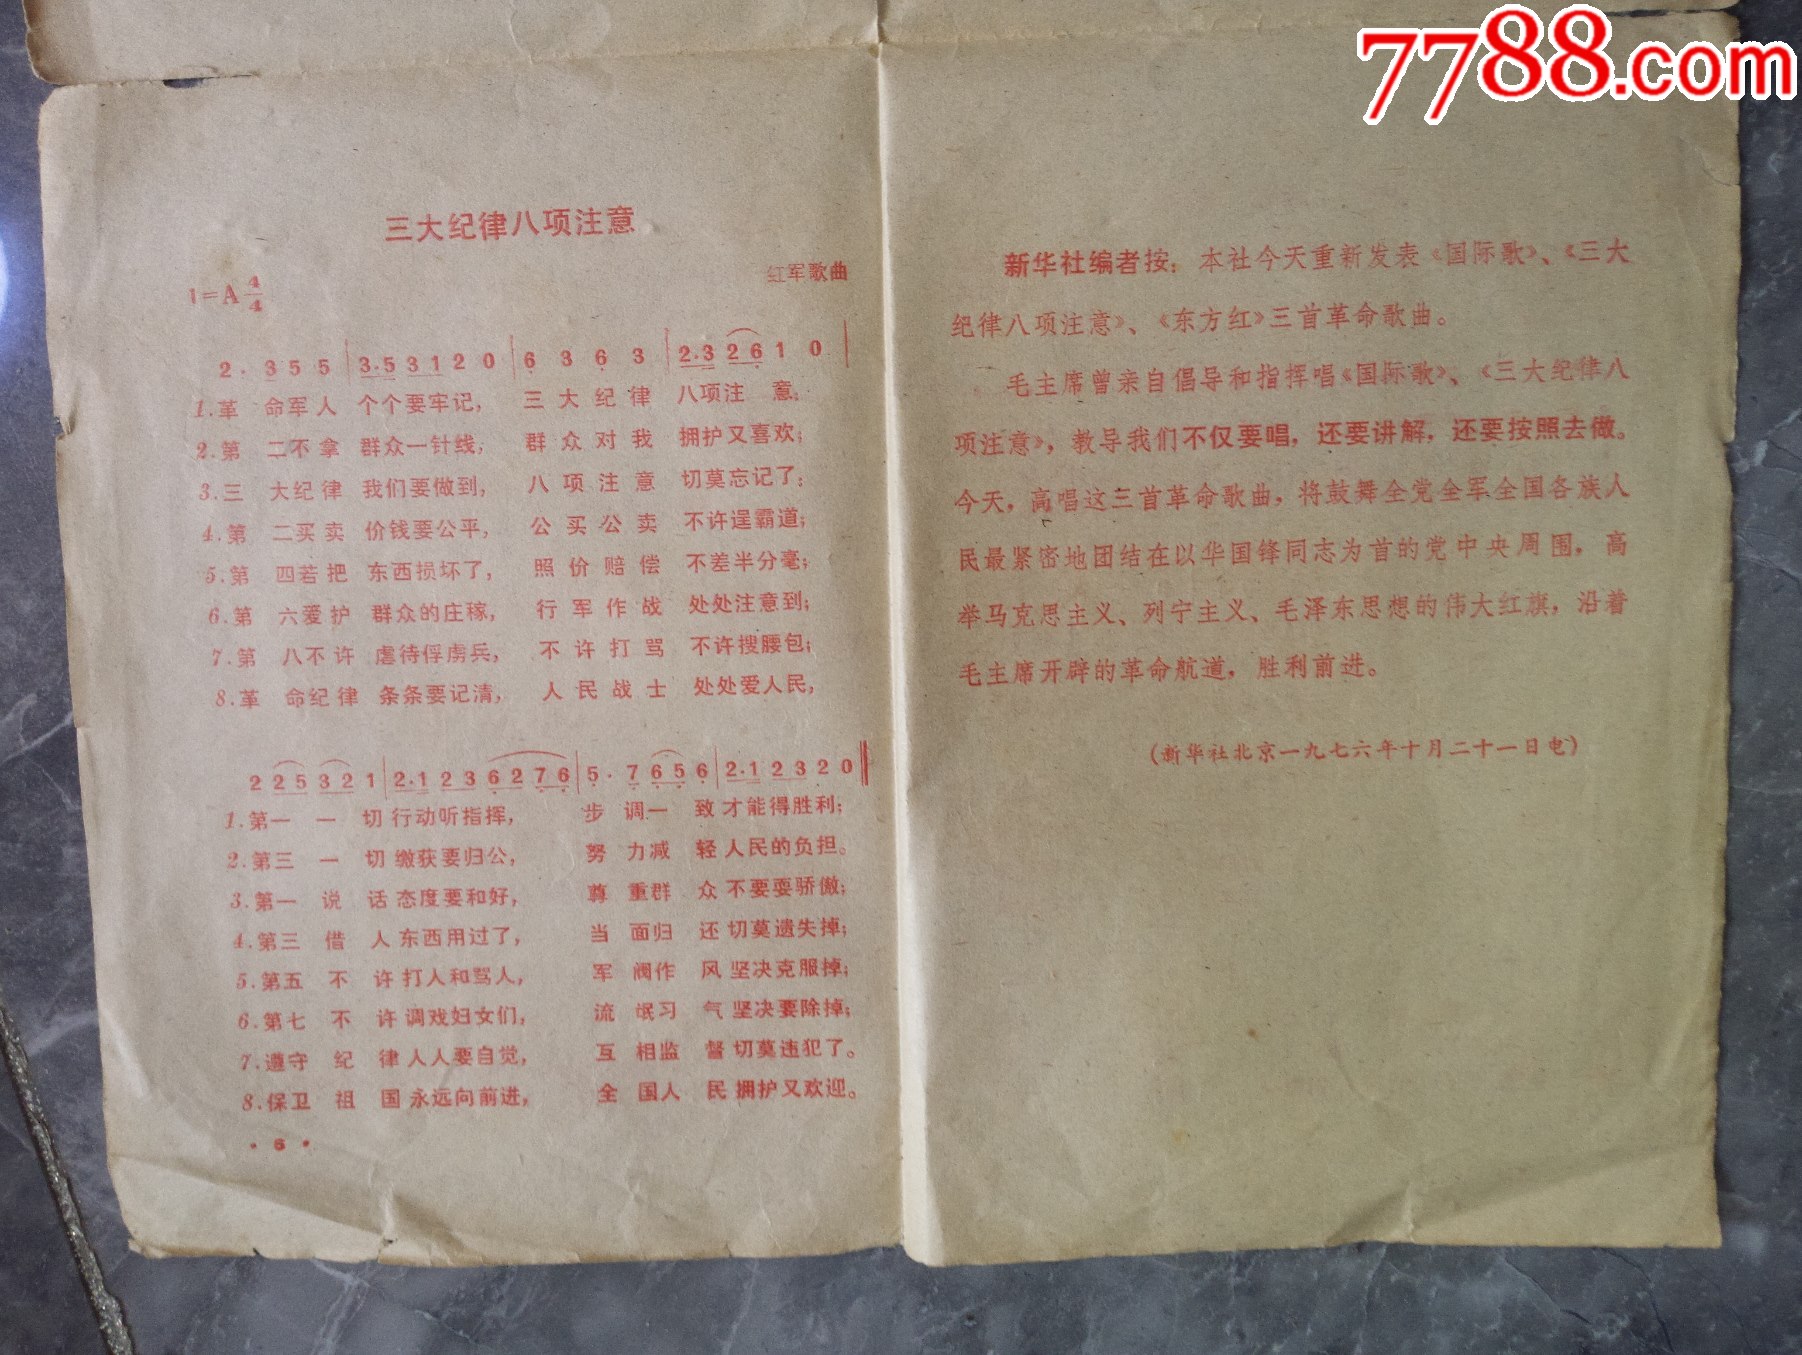 7788.com
三大纪律八项注意
红军歌曲
1=A 4/4
2. 3 5 5 | 3.5 3 1 2 0 | 6 3 6 3 | 2.3 2 6 1 0 |
1.革 命军人 个个要牢记, 三大纪律 八项注 意;
2.第 二不拿 群众一针线, 群众对我 拥护又喜欢;
3.三 大纪律 我们要做到, 八项注意 切莫忘记了;
4.第 二买卖 价钱要公平, 公买公卖 不许逞霸道;
5.第 四若把 东西损坏了, 照价赔偿 不差半分毫;
6.第 六爱护 群众的庄稼, 行军作战 处处注意到;
7.第 八不许 虐待俘虏兵, 不许打骂 不许搜腰包;
8.革 命纪律 条条要记清, 人民战士 处处爱人民,
2 2 5 3 2 1 | 2.1 2 3 6 2 7 6 | 5. 7 6 5 6 | 2.1 2 3 2 0 ‖
1.第一 一 切行动听指挥, 步 调一 致才能得胜利;
2.第三 一 切缴获要归公, 努 力减 轻人民的负担。
3.第一 说 话态度要和好, 尊 重群 众不要耍骄傲;
4.第三 借 人东西用过了, 当 面归 还切莫遗失掉;
5.第五 不 许打人和骂人, 军 阀作 风坚决克服掉;
6.第七 不 许调戏妇女们, 流 氓习 气坚决要除掉;
7.遵守 纪 律人人要自觉, 互 相监 督切莫违犯了。
8.保卫 祖 国永远向前进, 全 国人 民拥护又欢迎。
· 6 ·
新华社编者按：本社今天重新发表《国际歌》、《三大
纪律八项注意》、《东方红》三首革命歌曲。
毛主席曾亲自倡导和指挥唱《国际歌》、《三大纪律八
项注意》，教导我们不仅要唱，还要讲解，还要按照去做。
今天，高唱这三首革命歌曲，将鼓舞全党全军全国各族人
民最紧密地团结在以华国锋同志为首的党中央周围，高
举马克思主义、列宁主义、毛泽东思想的伟大红旗，沿着
毛主席开辟的革命航道，胜利前进。
（新华社北京一九七六年十月二十一日电）